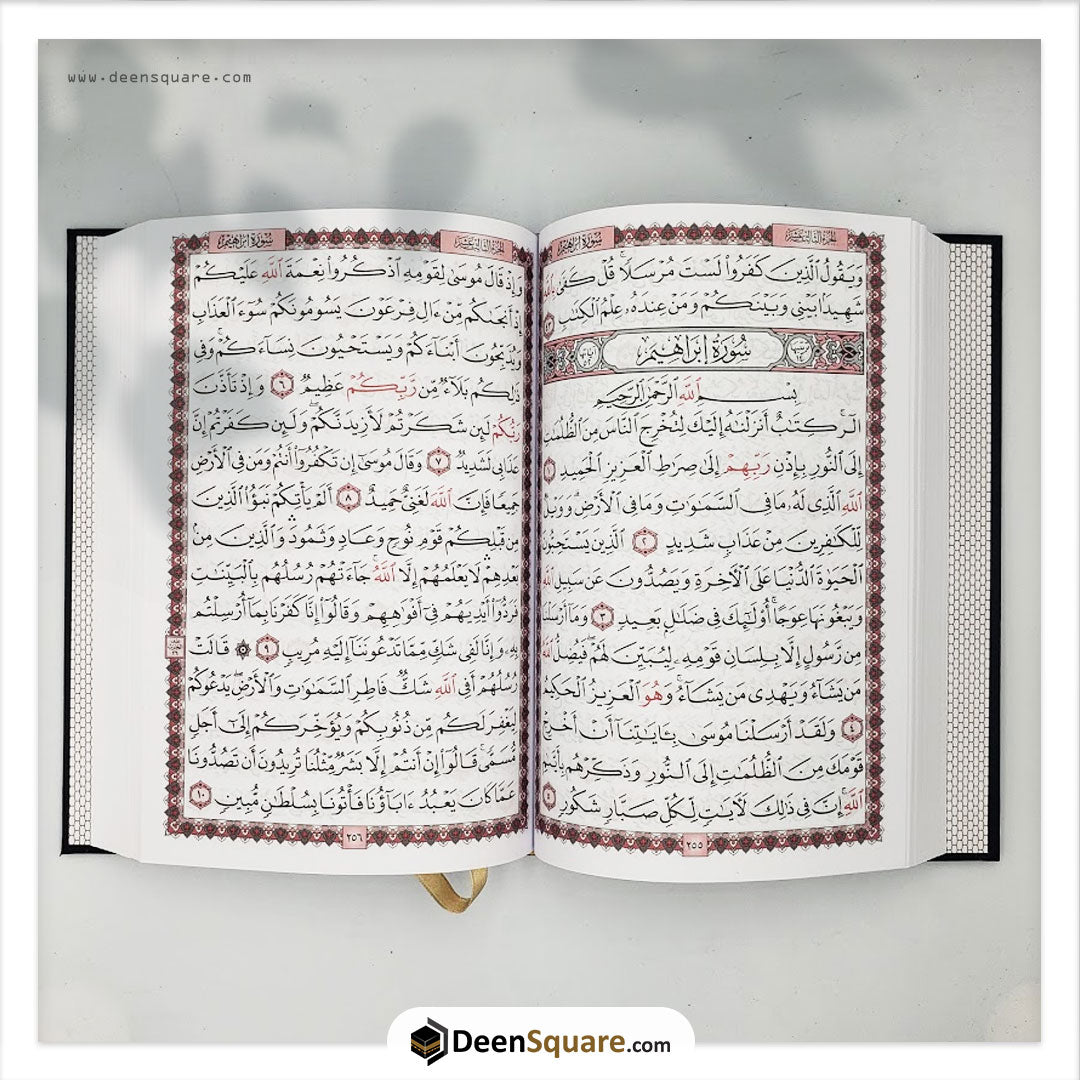 www.deensquare.com
سُورَةُ إِبْرَاهِيم الجُزْءُ الثَّالِثَ عَشَرَ
وَيَقُولُ ٱلَّذِينَ كَفَرُوا۟ لَسْتَ مُرْسَلًا ۚ قُلْ كَفَىٰ بِٱللَّهِ
شَهِيدًۢا بَيْنِى وَبَيْنَكُمْ وَمَنْ عِندَهُۥ عِلْمُ ٱلْكِتَٰبِ ٤٣
سُورَةُ إِبْرَاهِيمَ
بِسْمِ ٱللَّهِ ٱلرَّحْمَٰنِ ٱلرَّحِيمِ
الٓر ۚ كِتَٰبٌ أَنزَلْنَٰهُ إِلَيْكَ لِتُخْرِجَ ٱلنَّاسَ مِنَ ٱلظُّلُمَٰتِ
إِلَى ٱلنُّورِ بِإِذْنِ رَبِّهِمْ إِلَىٰ صِرَٰطِ ٱلْعَزِيزِ ٱلْحَمِيدِ ١
ٱللَّهِ ٱلَّذِى لَهُۥ مَا فِى ٱلسَّمَٰوَٰتِ وَمَا فِى ٱلْأَرْضِ ۗ وَوَيْلٌ
لِّلْكَٰفِرِينَ مِنْ عَذَابٍ شَدِيدٍ ٢ ٱلَّذِينَ يَسْتَحِبُّونَ
ٱلْحَيَوٰةَ ٱلدُّنْيَا عَلَى ٱلْءَاخِرَةِ وَيَصُدُّونَ عَن سَبِيلِ ٱللَّهِ
وَيَبْغُونَهَا عِوَجًا ۚ أُو۟لَٰٓئِكَ فِى ضَلَٰلٍۭ بَعِيدٍ ٣ وَمَآ أَرْسَلْنَا
مِن رَّسُولٍ إِلَّا بِلِسَانِ قَوْمِهِۦ لِيُبَيِّنَ لَهُمْ ۖ فَيُضِلُّ ٱللَّهُ
مَن يَشَآءُ وَيَهْدِى مَن يَشَآءُ ۚ وَهُوَ ٱلْعَزِيزُ ٱلْحَكِيمُ
٤ وَلَقَدْ أَرْسَلْنَا مُوسَىٰ بِـَٔايَٰتِنَآ أَنْ أَخْرِجْ
قَوْمَكَ مِنَ ٱلظُّلُمَٰتِ إِلَى ٱلنُّورِ وَذَكِّرْهُم بِأَيَّىٰمِ
ٱللَّهِ ۚ إِنَّ فِى ذَٰلِكَ لَءَايَٰتٍ لِّكُلِّ صَبَّارٍ شَكُورٍ ٥
٢٥٥
سُورَةُ إِبْرَاهِيم الجُزْءُ الثَّالِثَ عَشَرَ
وَإِذْ قَالَ مُوسَىٰ لِقَوْمِهِ ٱذْكُرُوا۟ نِعْمَةَ ٱللَّهِ عَلَيْكُمْ
إِذْ أَنجَىٰكُم مِّنْ ءَالِ فِرْعَوْنَ يَسُومُونَكُمْ سُوٓءَ ٱلْعَذَابِ
وَيُذَبِّحُونَ أَبْنَآءَكُمْ وَيَسْتَحْيُونَ نِسَآءَكُمْ ۚ وَفِى
ذَٰلِكُم بَلَآءٌ مِّن رَّبِّكُمْ عَظِيمٌ ٦ وَإِذْ تَأَذَّنَ
رَبُّكُمْ لَئِن شَكَرْتُمْ لَأَزِيدَنَّكُمْ ۖ وَلَئِن كَفَرْتُمْ إِنَّ
عَذَابِى لَشَدِيدٌ ٧ وَقَالَ مُوسَىٰٓ إِن تَكْفُرُوٓا۟ أَنتُمْ وَمَن فِى ٱلْأَرْضِ
جَمِيعًا فَإِنَّ ٱللَّهَ لَغَنِىٌّ حَمِيدٌ ٨ أَلَمْ يَأْتِكُمْ نَبَؤُا۟ ٱلَّذِينَ
مِن قَبْلِكُمْ قَوْمِ نُوحٍ وَعَادٍ وَثَمُودَ ۛ وَٱلَّذِينَ مِنۢ
بَعْدِهِمْ ۛ لَا يَعْلَمُهُمْ إِلَّا ٱللَّهُ ۚ جَآءَتْهُمْ رُسُلُهُم بِٱلْبَيِّنَٰتِ
فَرَدُّوٓا۟ أَيْدِيَهُمْ فِىٓ أَفْوَٰهِهِمْ وَقَالُوٓا۟ إِنَّا كَفَرْنَا بِمَآ أُرْسِلْتُم
بِهِۦ وَإِنَّا لَفِى شَكٍّ مِّمَّا تَدْعُونَنَآ إِلَيْهِ مُرِيبٍ ٩ ۞ قَالَتْ
رُسُلُهُمْ أَفِى ٱللَّهِ شَكٌّ فَاطِرِ ٱلسَّمَٰوَٰتِ وَٱلْأَرْضِ ۖ يَدْعُوكُمْ
لِيَغْفِرَ لَكُم مِّن ذُنُوبِكُمْ وَيُؤَخِّرَكُمْ إِلَىٰٓ أَجَلٍ
مُّسَمًّى ۚ قَالُوٓا۟ إِنْ أَنتُمْ إِلَّا بَشَرٌ مِّثْلُنَا تُرِيدُونَ أَن تَصُدُّونَا
عَمَّا كَانَ يَعْبُدُ ءَابَآؤُنَا فَأْتُونَا بِسُلْطَٰنٍ مُّبِينٍ ١٠
٢٥٦
DeenSquare.com